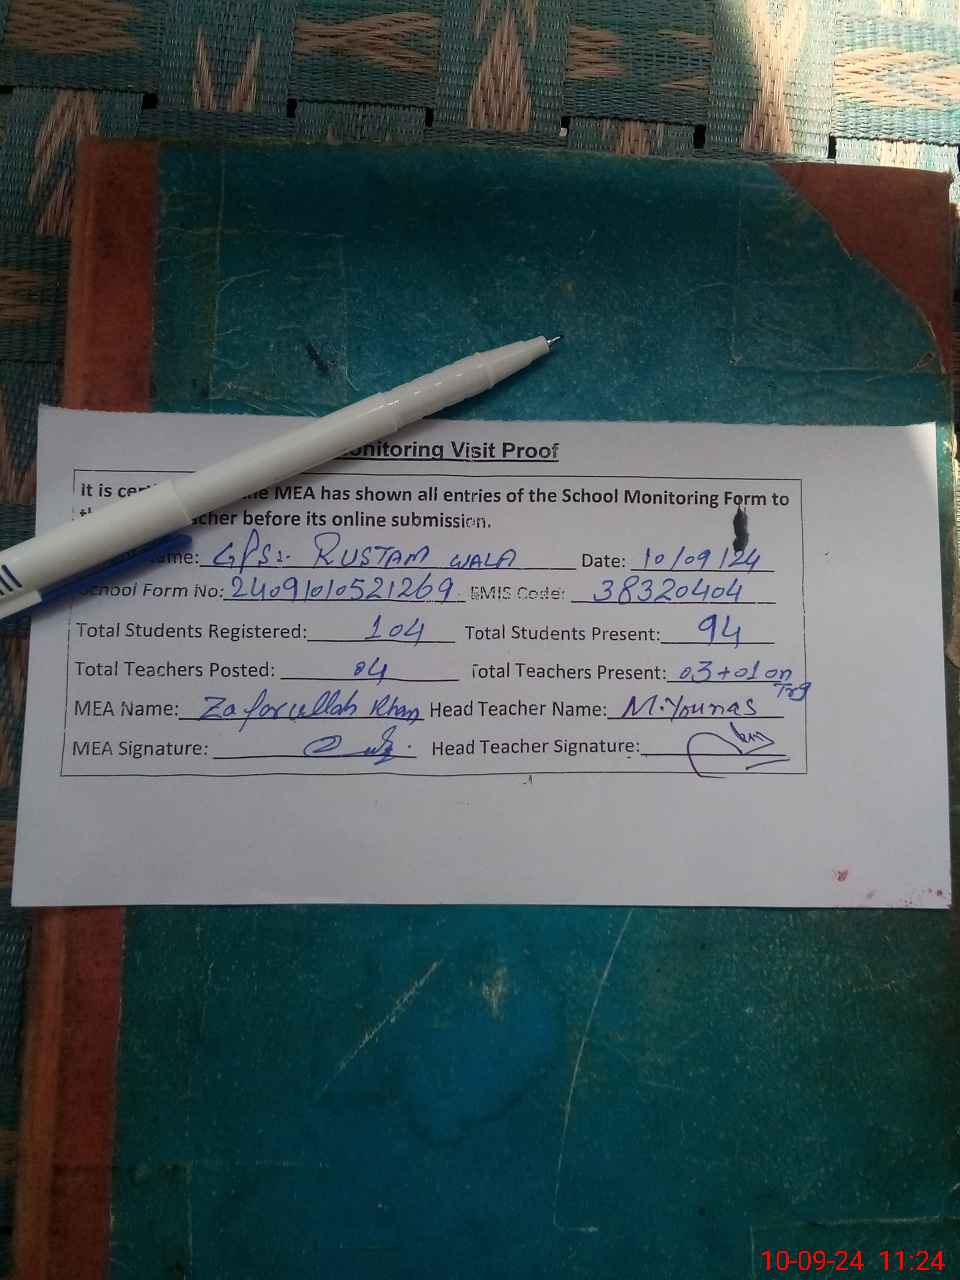 nitoring Visit Proof
It is MEA has shown all entries of the School Monitoring Form to
before its online submission.
GPS:- RUSTAM WALA Date: 10/09/24
School Form No: 24091010521269 EMIS Code: 38320404
Total Students Registered: 104 Total Students Present: 94
Total Teachers Posted: 04 Total Teachers Present: 03+01 on Trg
MEA Name: Zafarullah Khan Head Teacher Name: M.Younas
MEA Signature: Head Teacher Signature:
10-09-24 11:24